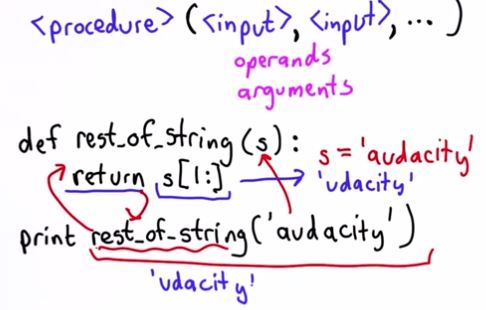 <procedure> (<input>, <input>, ... )
operands
arguments
def rest_of_string (s):
s = 'audacity'
return s[1:]
'udacity'
print rest_of_string('audacity')
'udacity'